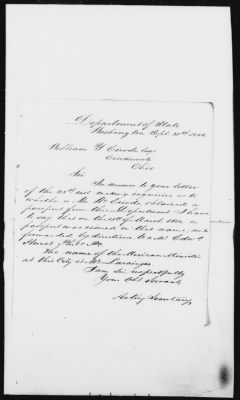 Department of State
Washington Sept. 30th 1852
William Y.
Cincinnati
Ohio
Sir
In answer to your letter
of the inst. making enquiries as to
whether a Mr. obtained a
passport from this Department I have
to say that on the of March last a
passport was issued in that name, and
forwarded by directions to
The name of the Mexican Minister
at this City is Mr. Larrainzar
I am Sir respectfully
Your Obt. Servant,
Acting Secretary